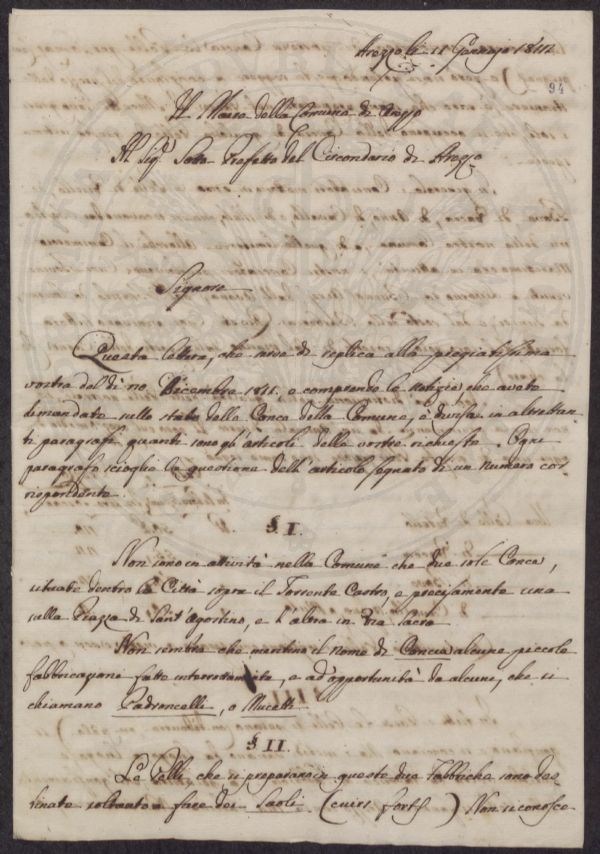 Arezzo li 11 Gennajo 1812
94
Il Maire della Comune di Arezzo
Al Sig.r Sotto-Prefetto del Circondario di Arezzo
Signore
Questa lettera, che serve di replica alla pregiatissima
vostra del dì 10. Dicembre 1811. e comprende le notizie che avete
dimandato sullo stato delle Conce della Comune, è divisa in altrettan-
ti paragrafi quanti sono gl'articoli della vostra richiesta. Ogni
paragrafo scioglie la questione dell'articolo segnato di un numero cor
rispondente.
§ I.
Non sono in attività nella Comune che due sole Conce,
situate dentro la Città sopra il Torrente Castro, e precisamente una
sulla Piazza di Sant'Agostino, e l'altra in Via Sacra
Non sembra che meritino il nome di Concia alcune piccole
fabbricazioni fatte interrottamente, e ad opportunità da alcuni, che si
chiamano Padroncelli, o Mucetti
§ II.
Le Pelli che si preparano in queste due Fabbriche sono des
tinate soltanto a fare dei Suoli (cuirs forts) Non si conosce